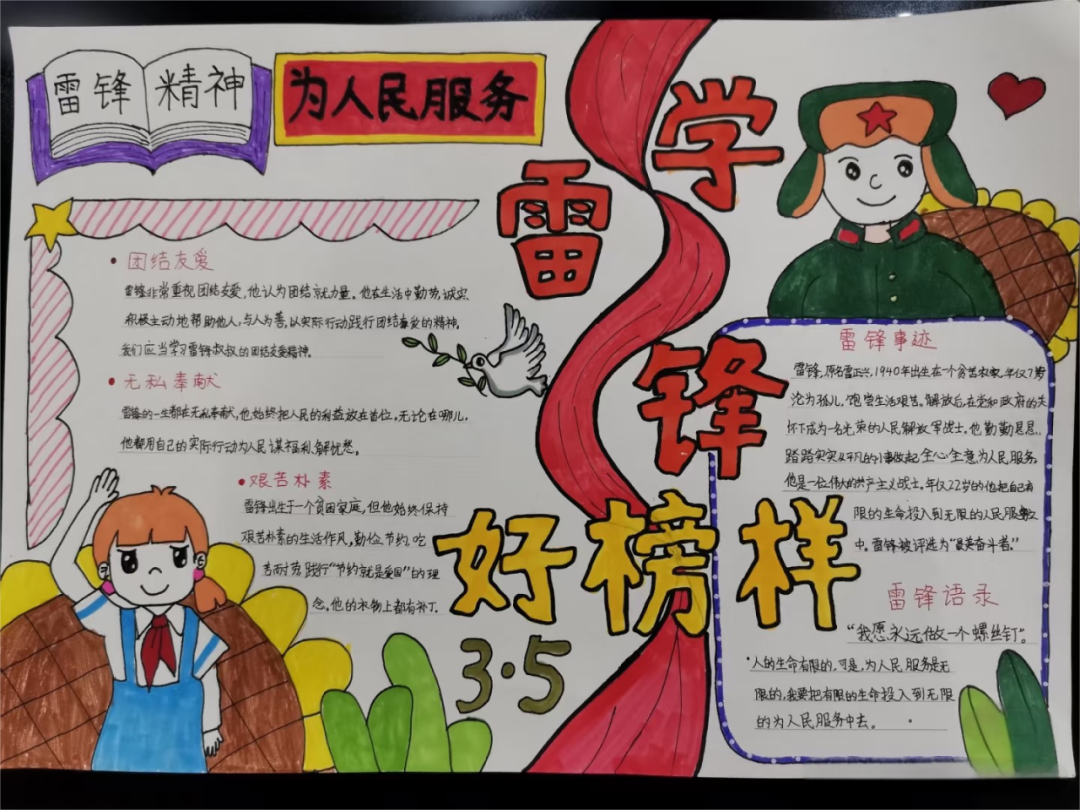 雷锋精神
为人民服务
学
雷
锋
好榜样
3·5
• 团结友爱
雷锋非常重视团结友爱,他认为团结就力量。他在生活中勤劳,诚实.
积极主动地帮助他人,与人为善,以实际行动践行团结友爱的精神.
我们应当学习雷锋叔叔的团结友爱精神。
• 无私奉献
雷锋的一生都在无私奉献,他始终把人民的利益放在首位,无论在哪儿.
他都用自己的实际行动为人民谋福利,解忧愁。
• 艰苦朴素
雷锋出生于一个贫困家庭,但他始终保持
艰苦朴素的生活作风,勤俭节约、吃
苦耐劳 践行"节约就是爱国"的理
念,他的衣物上都有补丁.
雷锋事迹
雷锋,原名雷正兴,1940年出生在一个贫苦农家,年仅7岁
沦为孤儿.饱尝生活艰苦。解放后,在党和政府的关
怀下成为一名光荣的人民解放军战士,他勤勤恳恳..
踏踏实实从平凡的小事做起 全心全意为人民服务.
他是一位伟大的共产主义战士,年仅22岁的他把自己有
限的生命投入到无限的人民服务之
中.雷锋被评选为"最美奋斗者."
雷锋语录
"我愿永远做一个螺丝钉"。
·人的生命有限的,可是,为人民服务是无
限的,我要把有限的生命投入到无限
的为人民服务中去。